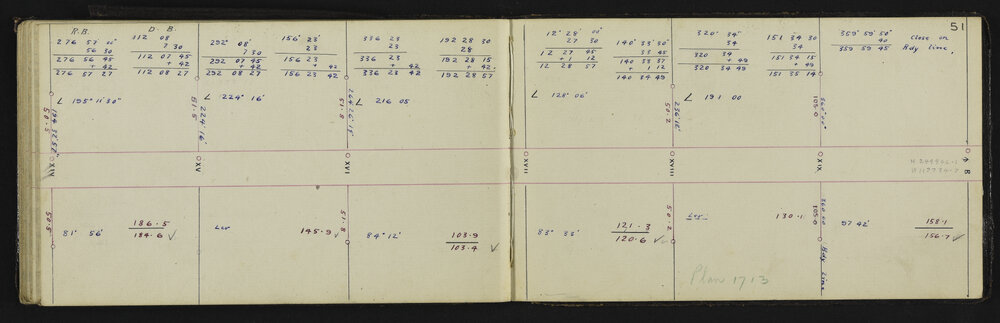 51
R.B. D. B.
276 57 11"
56 30
276 56 45
+ 42
276 57 27
112 08
7 30
112 07 45
+ 42
112 08 27
292° 08'
7 30
292 07 45
+ 42
292 08 27
156° 23'
23
156 23
+ 42
156 23 42
336 23
23
336 23
+ 42
336 23 42
192 28 30
28
192 28 15
+ 42
192 28 57
12° 28' 00"
27 30
12 27 45
+1 12
12 28 57
140° 33' 30"
33 45
140 33 37
+ 1 12
140 34 49
320° 34'
34
320 34
+ 49
320 34 49
151 34 30
34
151 34 15
+ 49
151 35 14
359° 59' 50"
40
359 59 45
Close on
Bdy line,
L 195° 11' 30"
L 224° 16'
L 216 05
L 128° 06'
L 191 00
50.5
51.5
224° 16'
51.8
50.2
256° 12'
105.0
360° 00'
XIV
XV
XVI
XVII
XVIII
XIX
4 B
50.5
81° 56'
186.5
184.6 ✓
Lev
145.9 ✓
51.8
84° 12'
103.9
103.4 ✓
83° 33'
121.3
120.6 ✓
50.2
Lev
130.1
360 00
105.0
Bdy Line
97 42'
158.1
156.7 ✓
Plan 1713